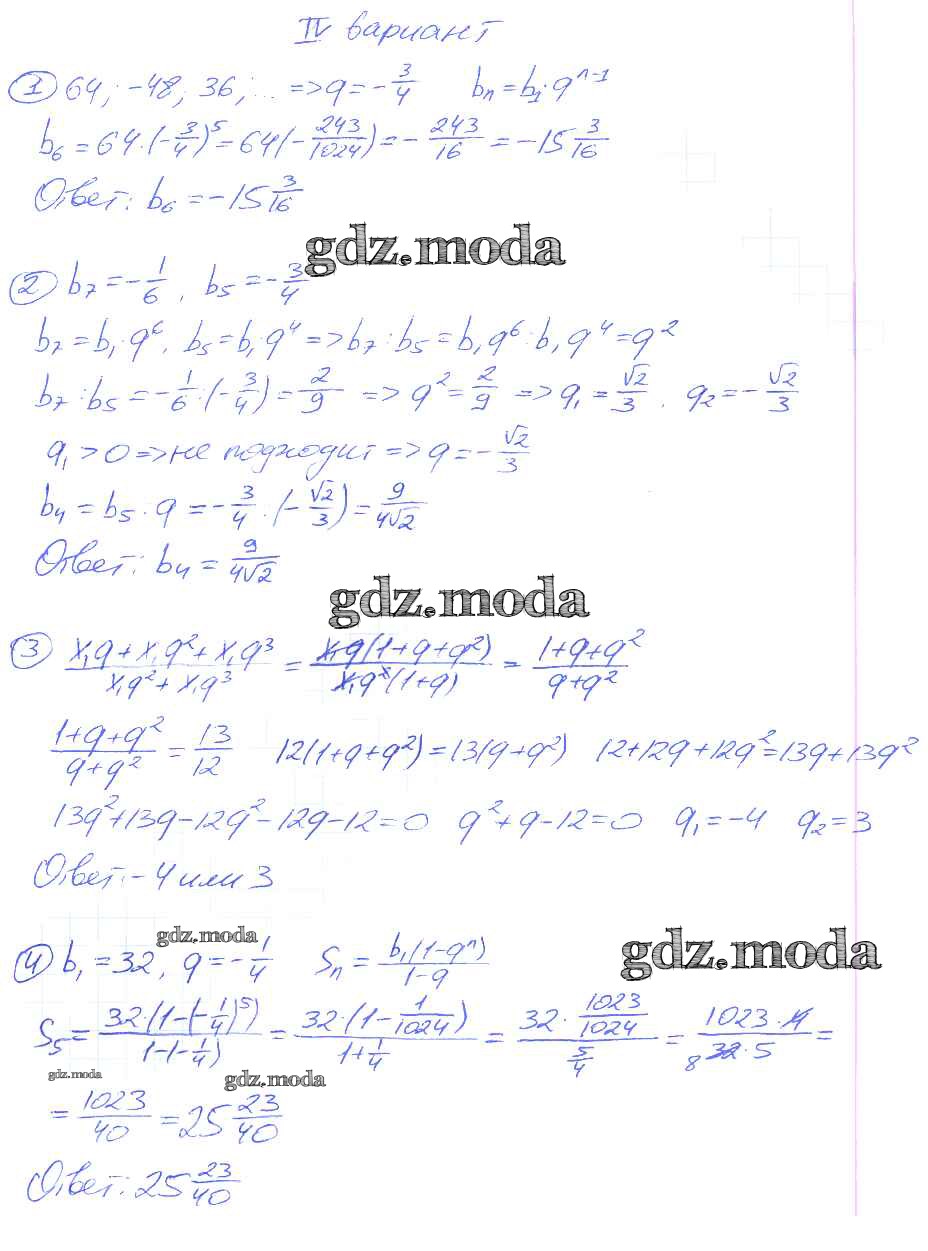 IV вариант
① 64; -48; 36; ... => q = -3/4 bₙ = b₁·qⁿ⁻¹
b₆ = 64·(-3/4)⁵ = 64(-243/1024) = -243/16 = -15 3/16
Ответ: b₆ = -15 3/16
gdz.moda
② b₇ = -1/6, b₅ = -3/4
b₇ = b₁·q⁶, b₅ = b₁·q⁴ => b₇:b₅ = b₁q⁶:b₁q⁴ = q²
b₇:b₅ = -1/6:(-3/4) = 2/9 => q² = 2/9 => q₁ = √2/3, q₂ = -√2/3
q₁ > 0 => не подходит => q = -√2/3
b₄ = b₅·q = -3/4:(-√2/3) = 9/4√2
Ответ: b₄ = 9/4√2
gdz.moda
③ (x₁q + x₁q² + x₁q³)/(x₁q² + x₁q³) = x₁q(1+q+q²)/x₁q²(1+q) = (1+q+q²)/(q+q²)
(1+q+q²)/(q+q²) = 13/12 12(1+q+q²) = 13(q+q²) 12+12q+12q² = 13q+13q²
13q²+13q-12q²-12q-12=0 q²+q-12=0 q₁=-4 q₂=3
Ответ: -4 или 3
gdz.moda
④ b₁ = 32, q = -1/4 Sₙ = b₁(1-qⁿ)/(1-q)
gdz.moda
S₅ = 32·(1-(-1/4)⁵)/(1-(-1/4)) = 32·(1-1/1024)/(1+1/4) = (32·1023/1024)/(5/4) = 1023·4/(32·5) = 8
gdz.moda
gdz.moda
= 1023/40 = 25 23/40
Ответ: 25 23/40